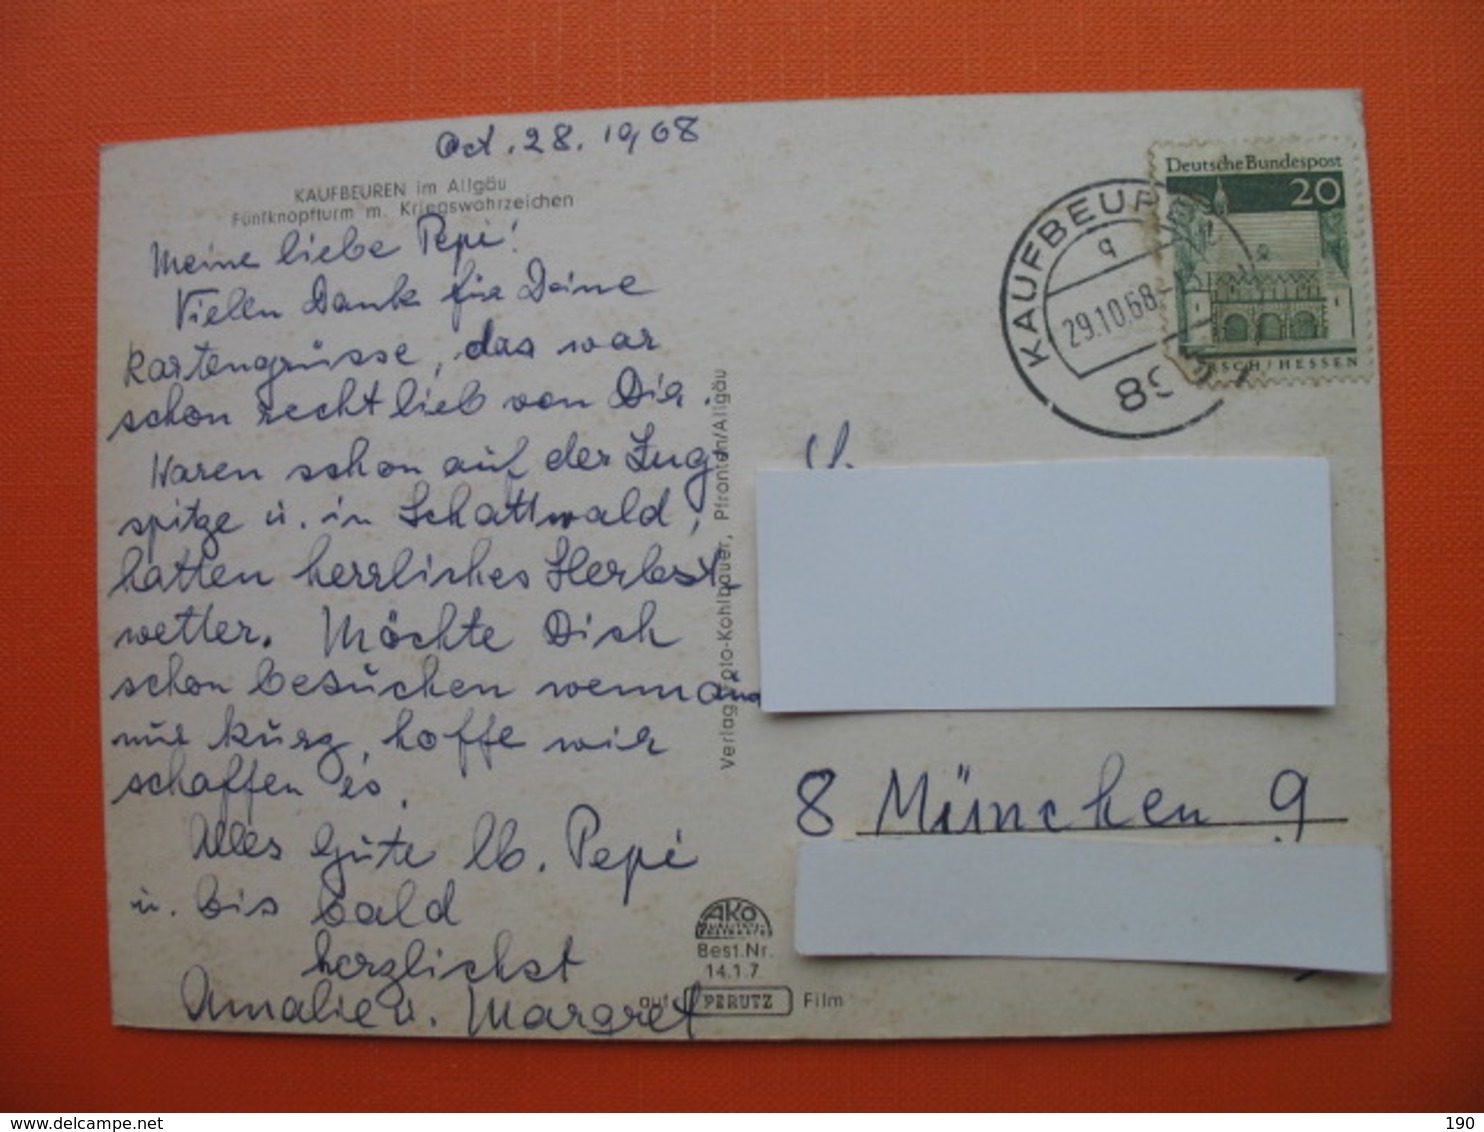 Oct. 28. 1968
KAUFBEUREN im Allgäu
Fünfknopfturm m. Kriegswahrzeichen
Meine liebe Pepi!
Vielen Dank für Deine
Kartengrüsse, das war
schon recht lieb von Dir.
Waren schon auf der Zug-
spitze u. in Schattwald,
hatten herrliches Herbst-
wetter. Möchte Dich
schon besuchen wenn
nur kurz, hoffe wir
schaffen es.
Alles Gute lb. Pepi
u. bis bald
herzlichst
Amalie u. Margret
Verlag Foto-Kohlbauer, Pfronten/Allgäu
AKO
Best.Nr.
14.1.7
auf PERUTZ Film
KAUFBEUR
a
29.10.68
89
Deutsche Bundespost
20
RSCH/HESSEN
8 München 9
delcampe.net
kubo
190